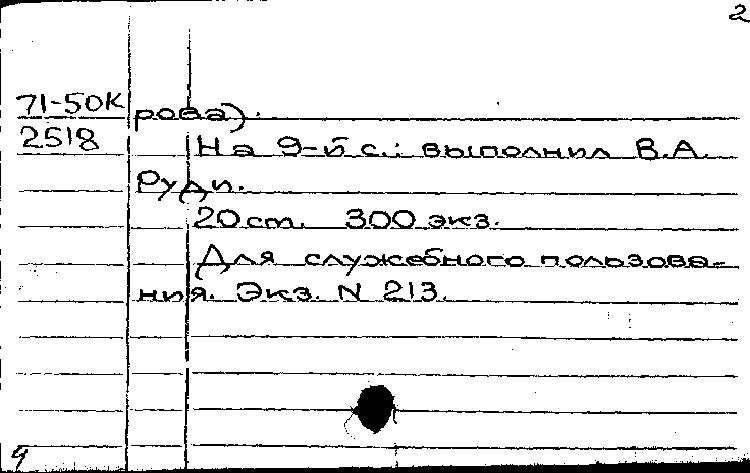 2
71-50К рова).
2518 На 9-й с.: выполнил В.А.
Руди.
20 cm. 300 экз.
Для служебного пользова-
ния. Экз. N 213.